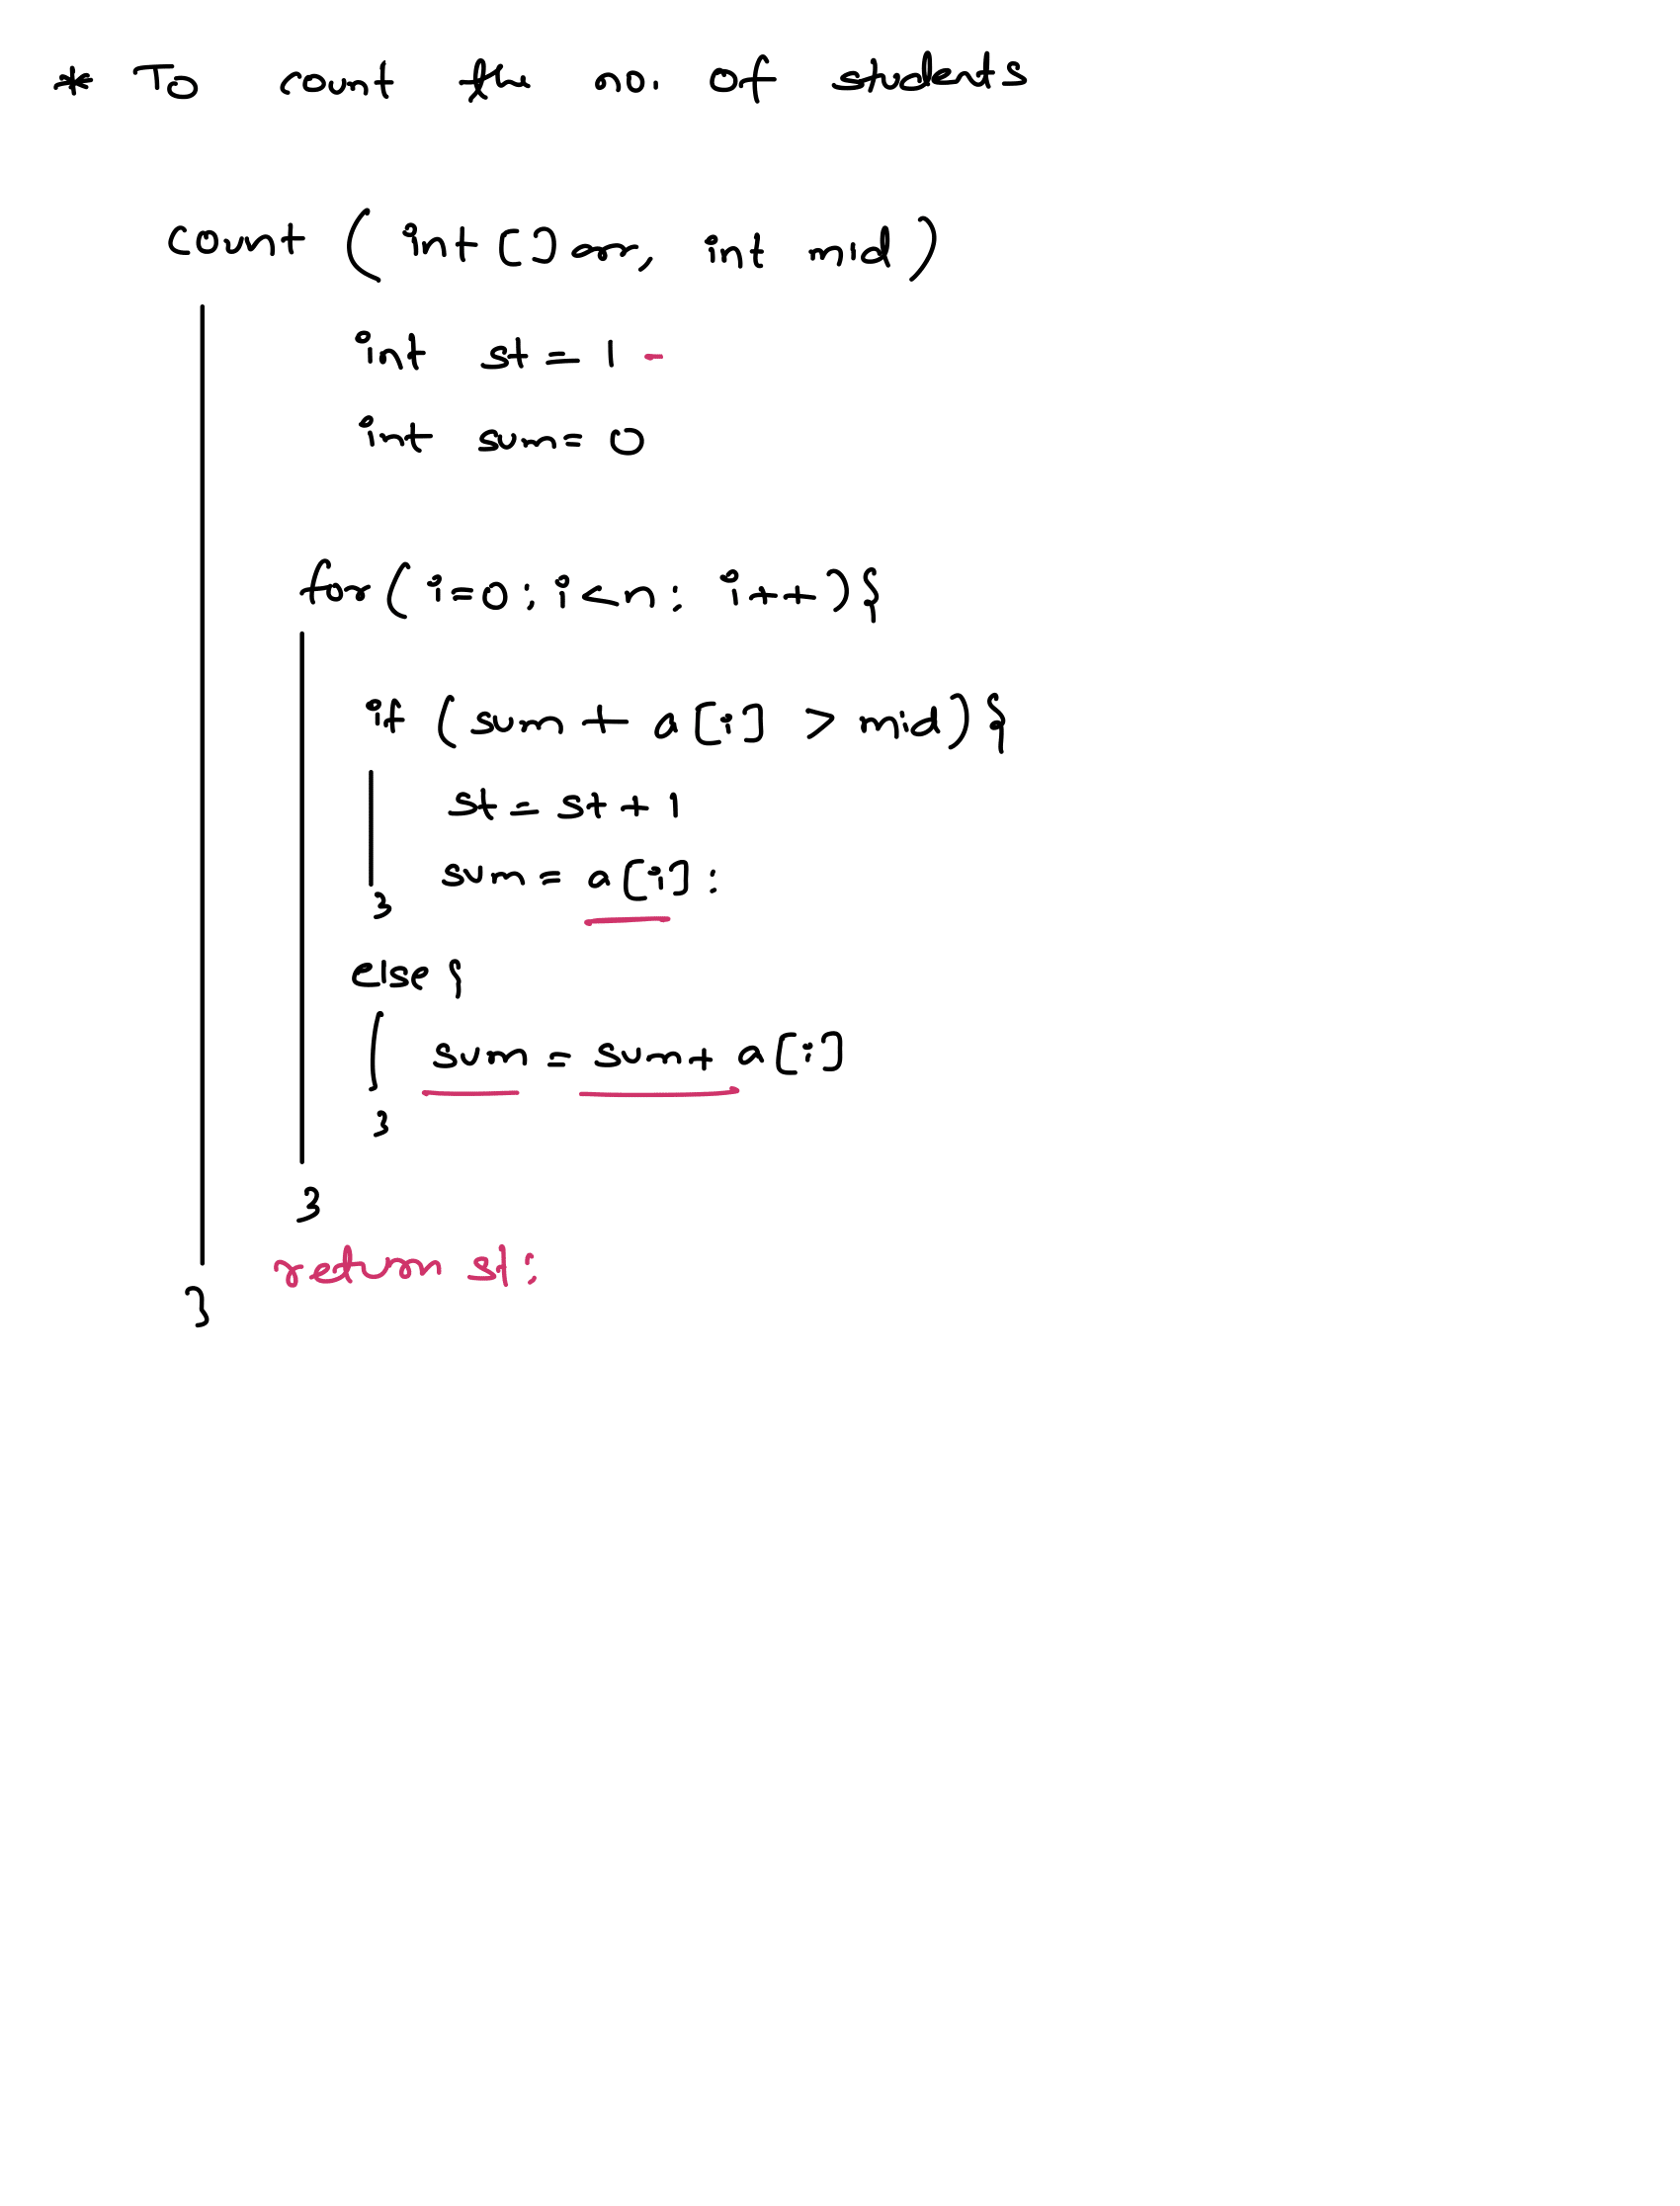 * To count the no. of students
count (int[] arr, int mid)
int st = 1 -
int sum = 0
for(i=0; i<n; i++){
if (sum + a[i] > mid){
st = st + 1
sum = a[i];
}
else {
sum = sum + a[i]
}
}
return st;
}